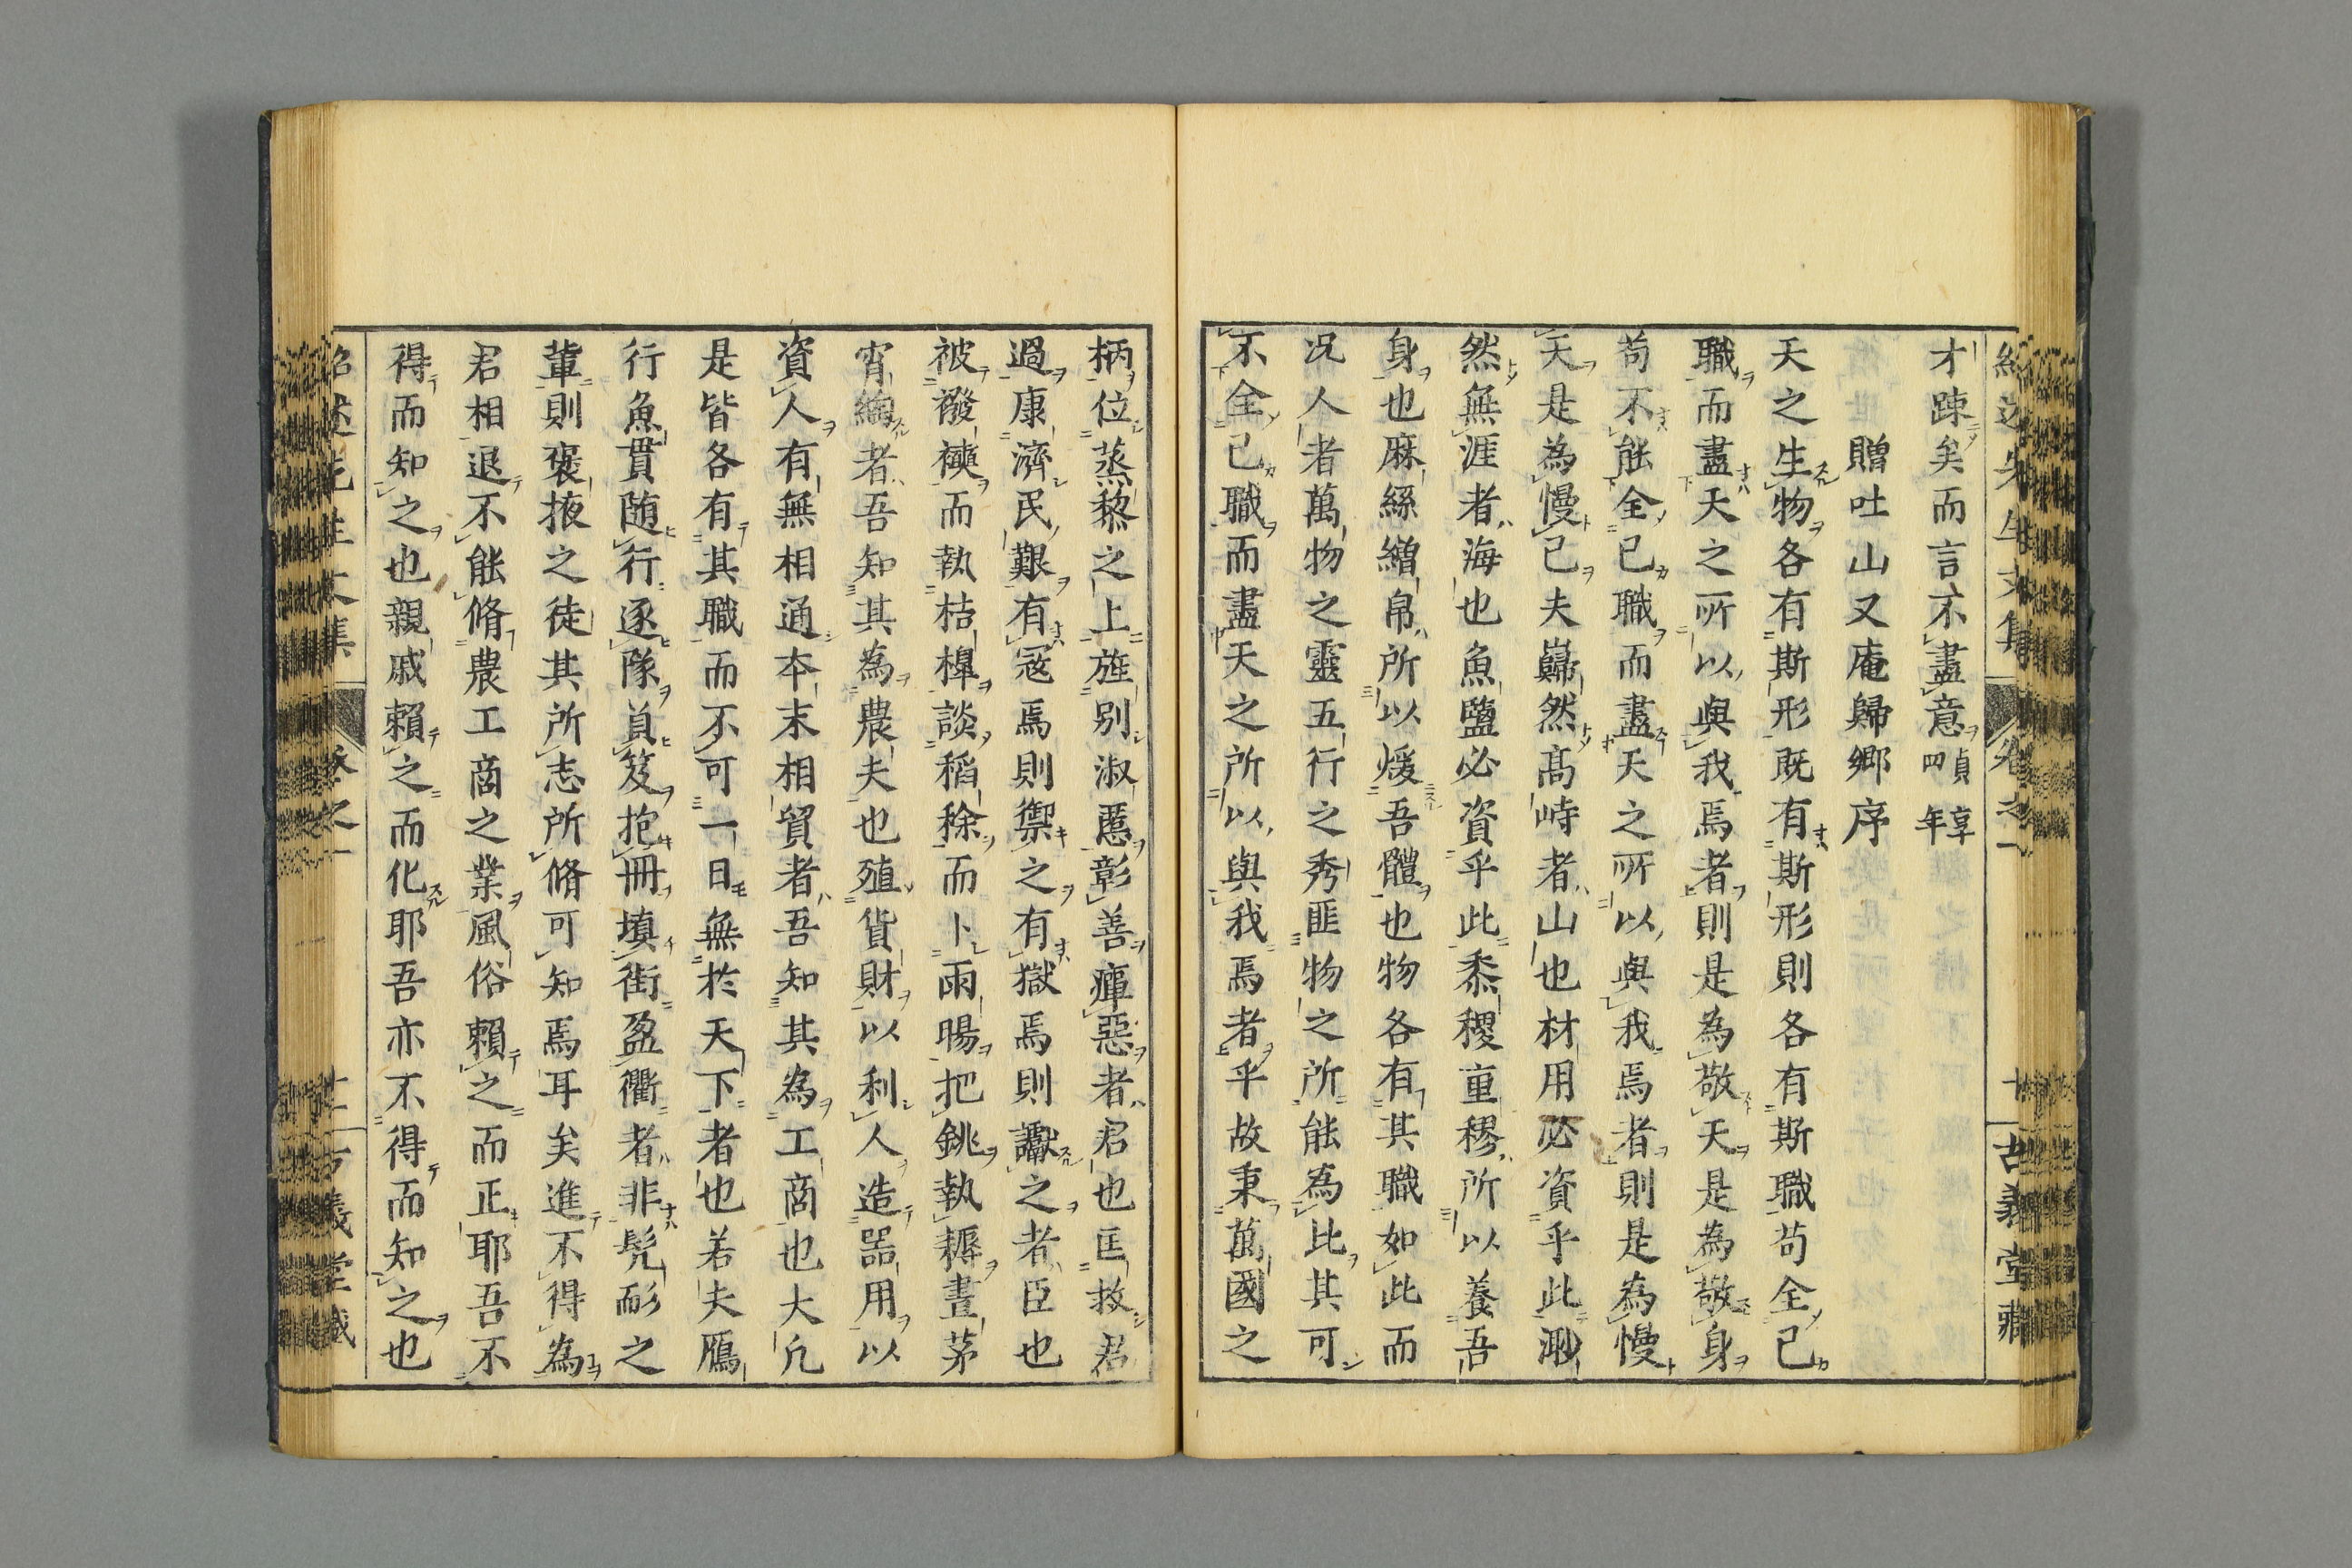 才踈矣而言不盡意貞享四年
贈吐山又庵歸鄉序
天之生物各有斯形既有斯形則各有斯職苟全己
職而盡天之所以與我焉者則是為敬天是為敬身
苟不能全己職而盡天之所以與我焉者則是為慢
天是為慢己夫巋然高峙者山也材用必資乎此渺
然無涯者海也魚鹽必資乎此黍稷重穋所以養吾
身也麻絲繒帛所以煖吾體也物各有其職如此而
况人者萬物之靈五行之秀匪物之所能為比其可
不全己職而盡天之所以與我焉者乎故秉萬國之
紹述先生文集 卷之一 十 古義堂藏
柄位蒸黎之上旌别淑慝彰善癉惡者君也匡救君
過康濟民艱有冦焉則禦之有獄焉則讞之者臣也
被襏襫而執枯槹談稻稌而卜雨暘把銚執耨晝茅
宵綯者吾知其為農夫也殖貨財以利人造器用以
資人有無相通本末相貿者吾知其為工商也大凢
是皆各有其職而不可一日無於天下者也若夫鴈
行魚貫随行逐隊負笈抱冊塡街盈衢者非髡耏之
輩則襃掖之徒其所志所脩可知焉耳矣進不得為
君相退不能脩農工商之業風俗賴之而正耶吾不
得而知之也親戚賴之而化耶吾亦不得而知之也
紹述先生文集 卷之一 古義堂藏